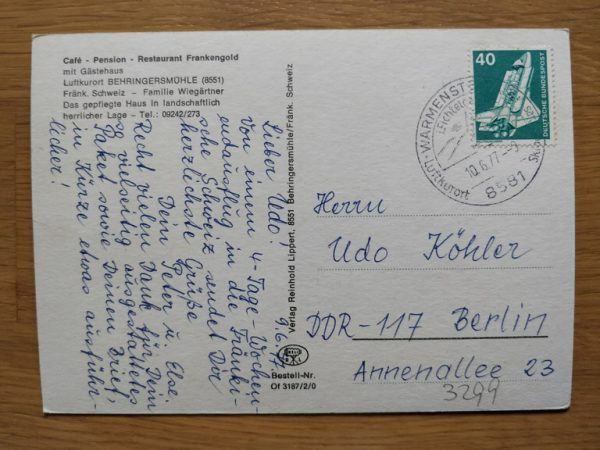 Café - Pension - Restaurant Frankengold
mit Gästehaus
Luftkurort BEHRINGERSMÜHLE (8551)
Fränk. Schweiz - Familie Wiegärtner
Das gepflegte Haus in landschaftlich
herrlicher Lage - Tel.: 09242/273
9.6.77
Lieber Udo!
Von einem 4-Tage-Wochen-
endausflug in die Fränki-
sche Schweiz sendet Dir
herzlichste Grüße
Dein Peter u. Else.
Recht vielen Dank für Dein
so vielseitig ausgestattetes
Paket sowie Deinen Brief,
in Kürze etwas ausführ-
licher!
Verlag Reinhold Lippert, 8551 Behringersmühle/Fränk. Schweiz
Bestell-Nr.
Of 3187/2/0
40
DEUTSCHE BUNDESPOST
WARMENST
10.6.77
Luftkurort
8581
Herrn
Udo Köhler
DDR-117 Berlin
Annenallee 23
3299